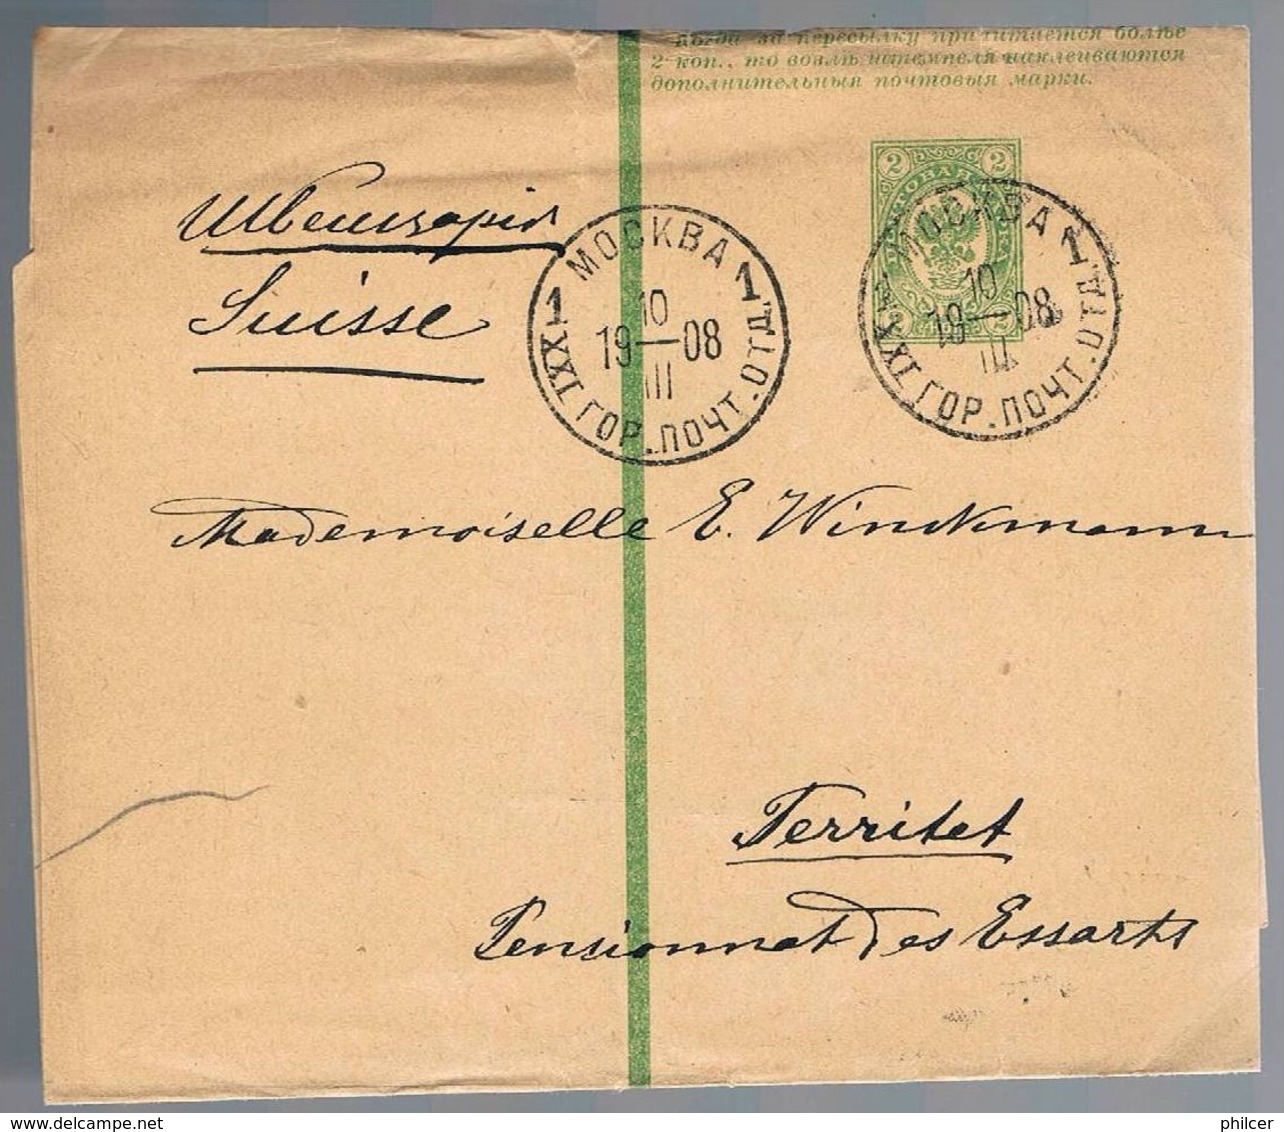 Когда за пересылку причитается болѣе
2 коп., то возлѣ штемпеля наклеиваются
дополнительныя почтовыя марки.
2 2
ПОЧТОВАЯ МАРКА
2 2
МОСКВА 1
10
19—08
III
1 XXI ГОР. ПОЧТ. ОТД.
МОСКВА 1
10
19—08
III
XXI ГОР. ПОЧТ. ОТД.
Швейцарія
Suisse
Mademoiselle E. Winckmann
Territet
Pensionnat des Essarts
delcampe.net
philcer